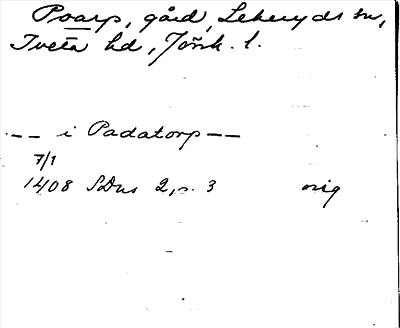 Poarp, gård, Lekeryds sn,
Tveta hd, Jönk. l.
-- i Padatorp --
7/1
1408 SDns 2, s. 3 orig